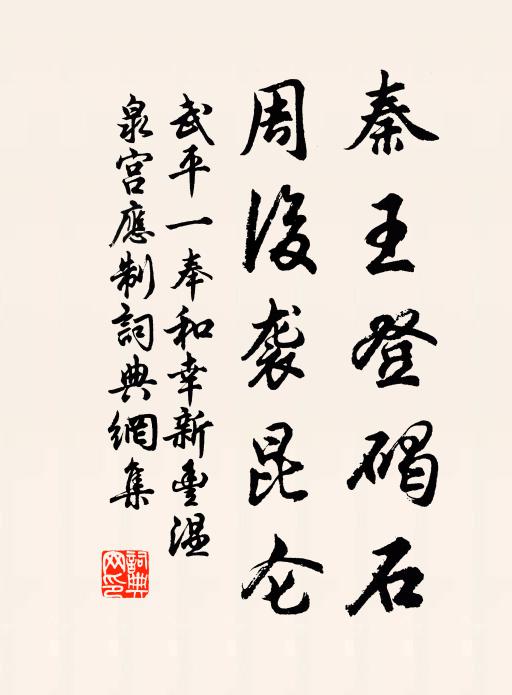 秦王登碣石
周後袭昆仑
武平一奉和幸新豊温
泉宫應制詞典網集
詞典網印